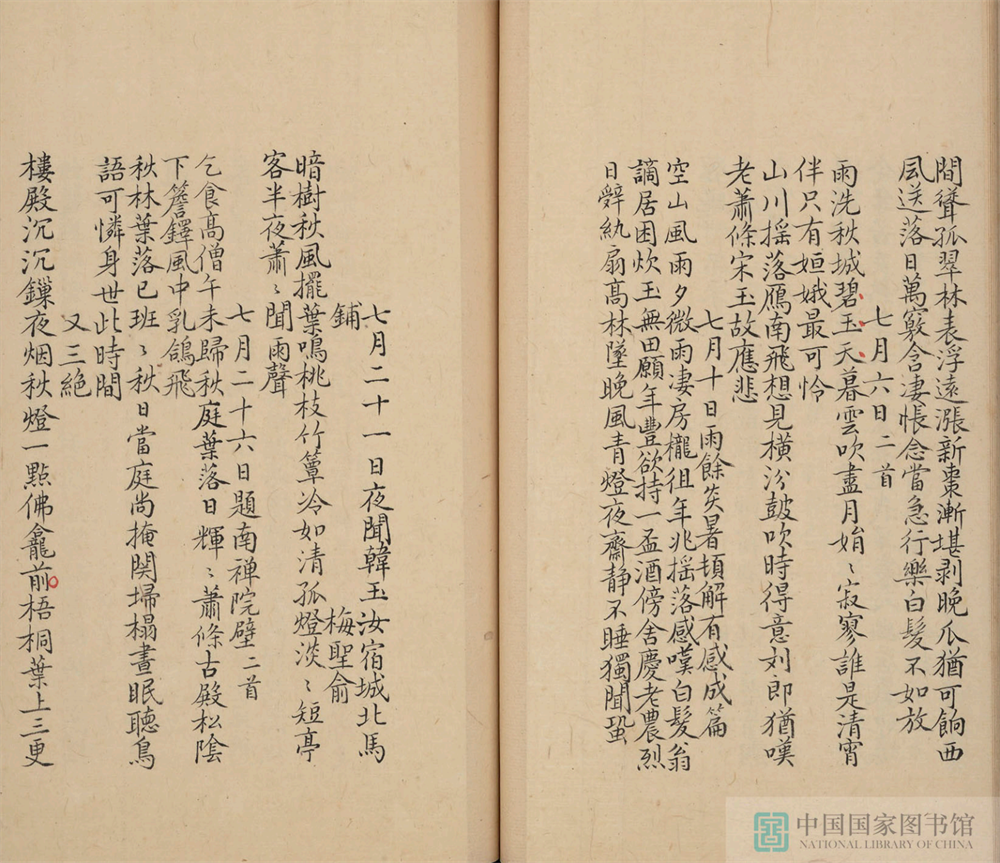 間聳孤翠林表浮遠漲新棗漸堪剥晚瓜猶可餉西
風送落日萬竅含淒悵念當急行樂白髮不如放
七月六日二首
雨洗秋城碧玉天暮雲吹盡月娟〻寂寥誰是清宵
伴只有姮娥最可怜
山川揺落鴈南飛想見橫汾鼓吹時得意刘郎猶嘆
老蕭條宋玉故應悲
七月十日雨餘炎暑頓解有感成篇
空山風雨夕微雨凄房櫳徂年兆揺落感嘆白髮翁
謫居困炊玉無田願年豐欲持一盃酒傍舍慶老農烈
日辤紈扇高林墜晚風青燈夜齋静不睡獨聞蛩
七月二十一日夜聞韓玉汝宿城北馬
鋪　梅聖俞
暗樹秋風擺葉鳴桃枝竹簟冷如清孤燈淡〻短亭
客半夜蕭〻聞雨聲
七月二十六日題南禅院壁二首
乞食髙僧午未歸秋庭葉落日輝〻蕭條古殿松陰
下簷鐸風中乳鴿飛
秋林葉落已班〻秋日當庭尚掩関埽榻晝眠聽鳥
語可憐身世此時間
又三絶
樓殿沉沉鏁夜烟秋燈一點佛龕前梧桐葉上三更
中国国家图书馆
NATIONAL LIBRARY OF CHINA